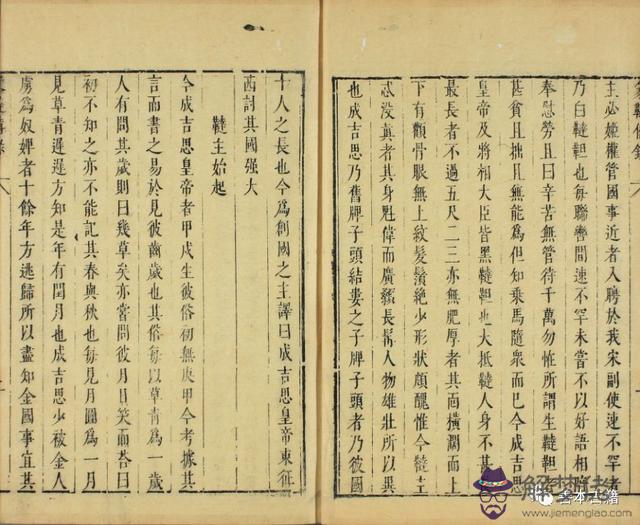 主必姬權管國事近者入聘於我宋副使速不罕者
乃白韃靼也每聯轡間速不罕未嘗不以好語相陪
奉慰勞且曰辛苦無管待千萬勿恠所謂生韃靼
甚貧且拙且無能為但知乗馬隨衆而已今成吉思
皇帝及將相大臣皆黑韃靼也大抵韃人身不甚
最長者不過五尺二三亦無肥厚者其面橫濶而上
下有顴骨眼無上紋髮鬚絶少形狀頗醜惟今韃主
忒没真者其身魁偉而廣顙長髯人物雄壯所以異
也成吉思乃舊牌子頭結婁之子牌子頭者乃彼國
十人之長也今為創國之主譯曰成吉思皇帝東征
西討其國强大
韃主始起
今成吉思皇帝者甲戌生彼俗初無庚甲今考據其
言而書之易於見彼齒歲也其俗每以草青為一歲
人有問其歲則曰幾草矣亦嘗問彼月日笑而荅曰
初不知之亦不能記其春與秋也每見月圓為一月
見草青遲遲方知是年有閏月也成吉思少被金人
虜為奴婢者十餘年方逃歸所以盡知金國事宜其
解梦老
善本古籍